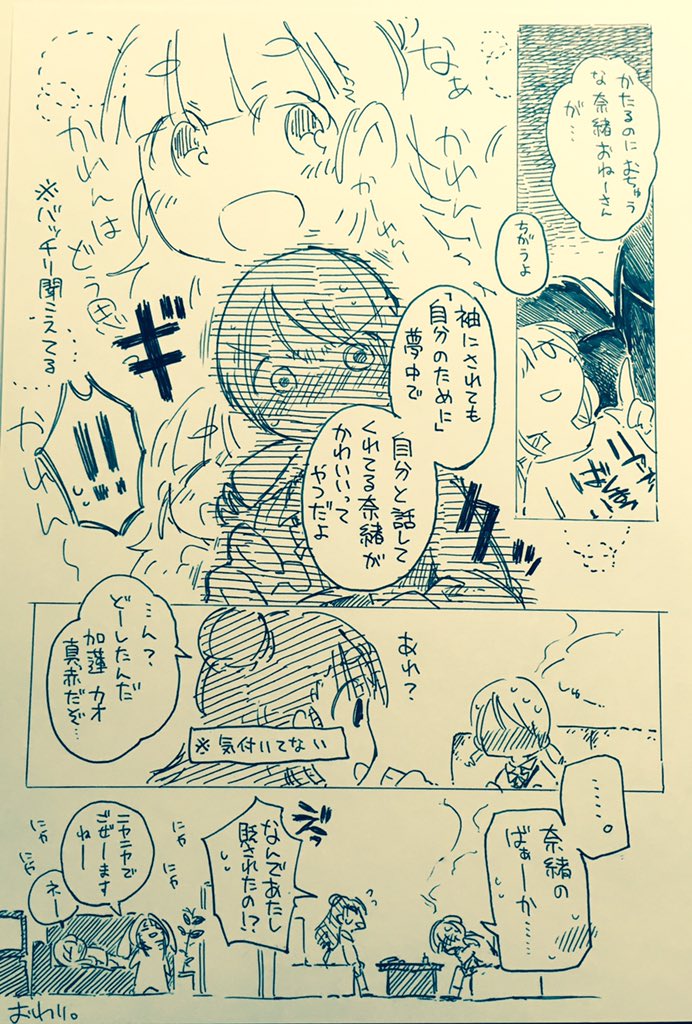 かたるのに むちゅう
な奈緒おねーさん
が…
ちがうよ
袖にされても
「自分のために」
夢中で
自分と話して
くれてる奈緒が
かわいいって
やつだよ
なぁ
かれん
かれんは
どう
※バッチリ聞こえてる
ギ
!!
かれん
あれ?
…ん?
どーしたんだ
加蓮 カオ
真赤だぞ…
※気付いてない
しゅー…
……。
奈緒の
ばぁーか……
なんであたし
貶されたの!?
ニヤニヤで
ごぜーます
ねー
ネー
にや
にや
にや
にや
おわり。